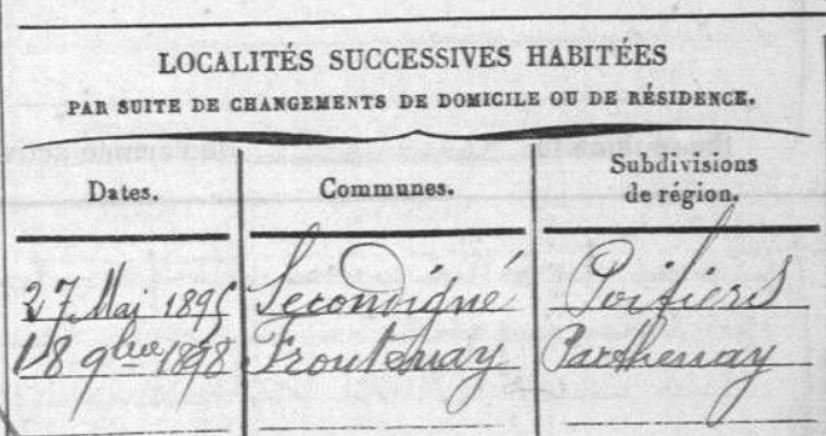 LOCALITÉS SUCCESSIVES HABITÉES
PAR SUITE DE CHANGEMENTS DE DOMICILE OU DE RÉSIDENCE.
Dates. Communes. Subdivisions de région.
27 Mai 1895 Secondigné Poitiers
18 9bre 1898 Frontenay Parthenay